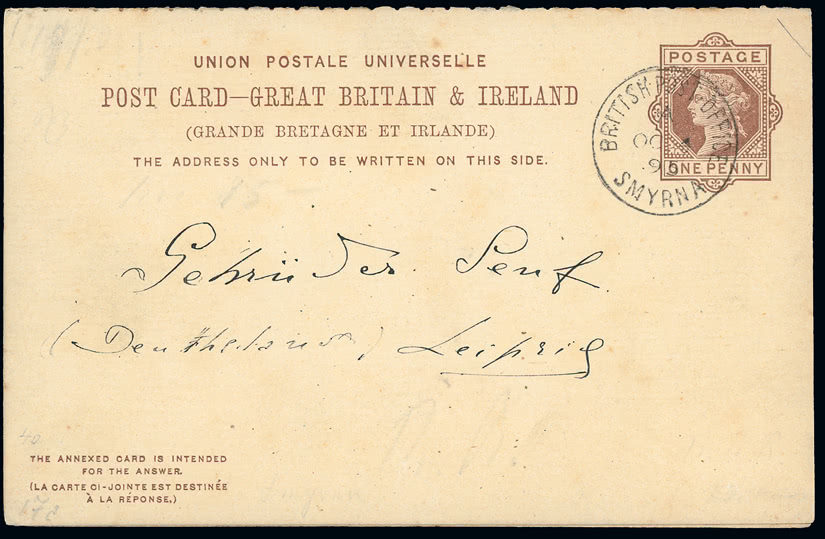 UNION POSTALE UNIVERSELLE
POST CARD—GREAT BRITAIN & IRELAND
(GRANDE BRETAGNE ET IRLANDE)
THE ADDRESS ONLY TO BE WRITTEN ON THIS SIDE.
POSTAGE
ONE PENNY
BRITISH POST OFFICE
A
OC
95
SMYRNA
Gebrüder Senf
(Deuthsland) Leipzig
THE ANNEXED CARD IS INTENDED
FOR THE ANSWER.
(LA CARTE CI-JOINTE EST DESTINÉE
À LA RÉPONSE.)